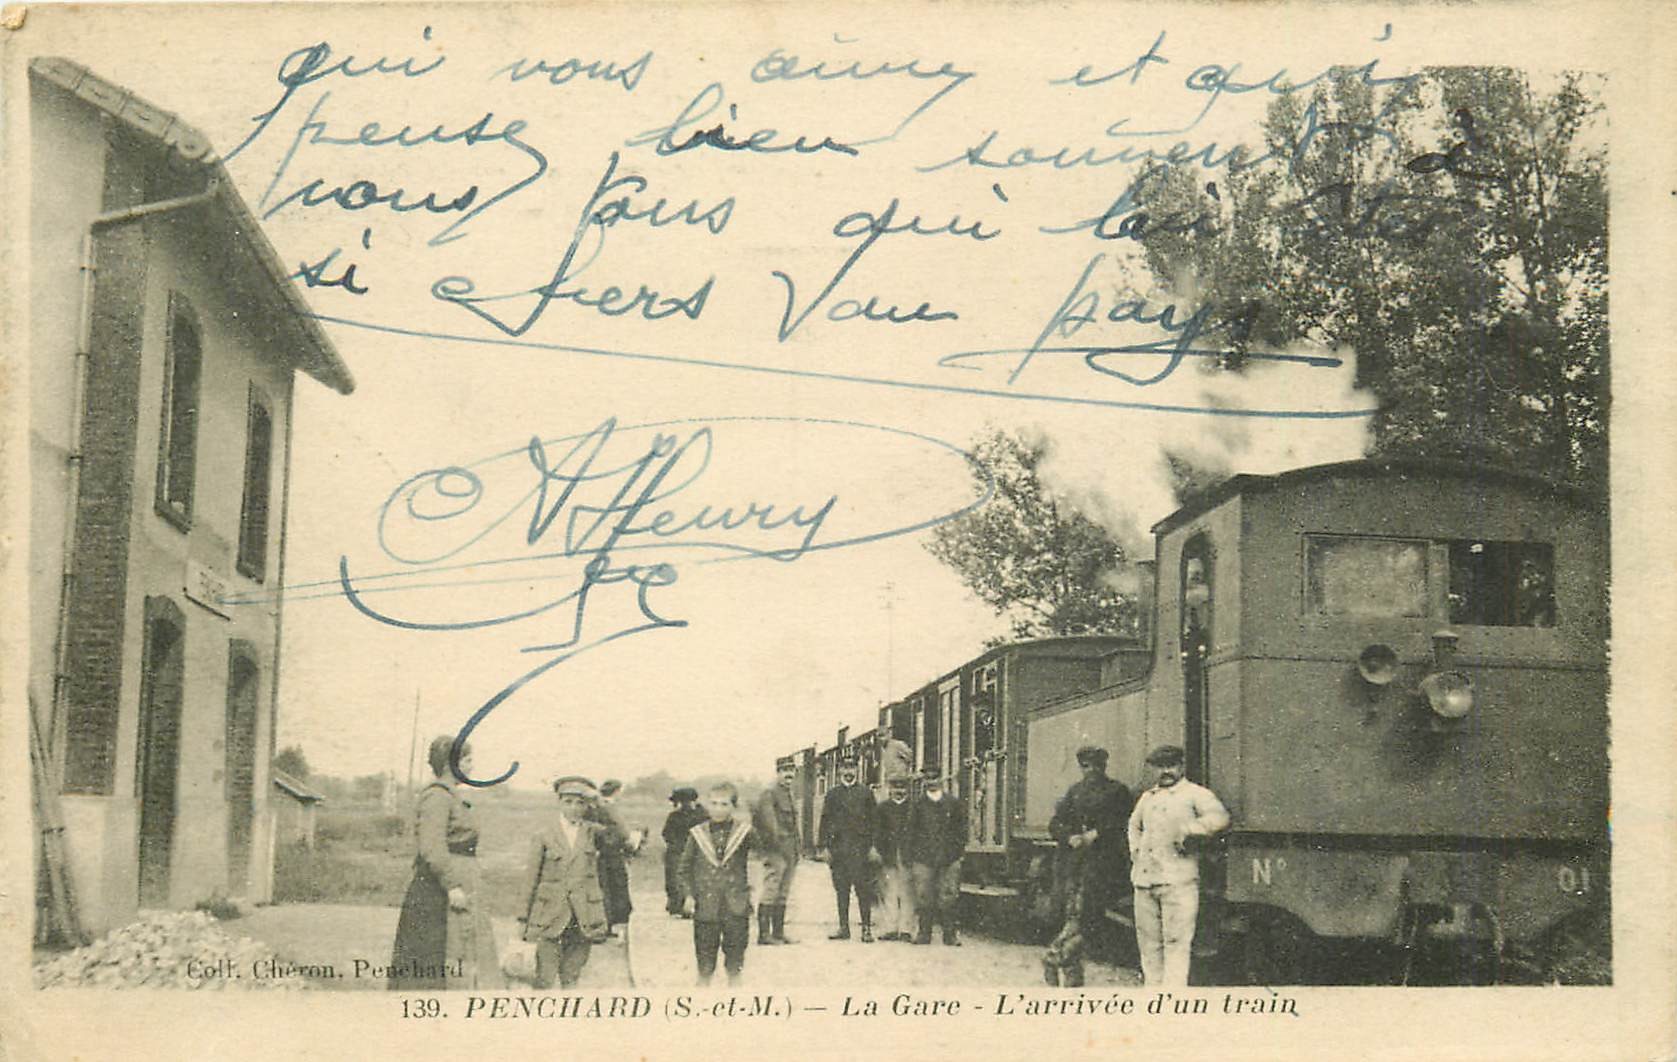 qui vous aime et qui
pense bien souvent à
vous tous qui lui êtes
si chers au pays
AHenry
N° 01
Coll. Chéron, Penchard
139. PENCHARD (S.-et-M.) — La Gare - L'arrivée d'un train